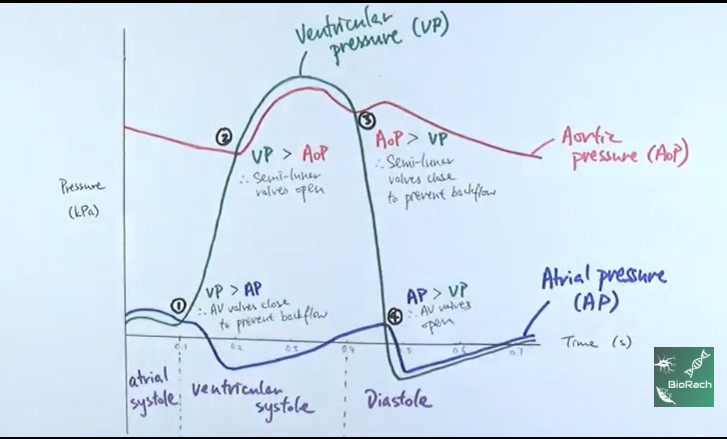 Ventricular
pressure (VP)
②
③
VP > AoP
∴ Semi-lunar
valves open
AoP > VP
∴ Semi-lunar
valves close
to prevent backflow
Aortic
pressure (AoP)
Pressure
(kPa)
①
VP > AP
∴ AV valves close
to prevent backflow
AP > VP
④
∴ AV valves
open
Atrial pressure
(AP)
0.1
0.2
0.3
0.4
0.6
0.7
Time (s)
atrial
systole
ventricular
systole
Diastole
BioRach